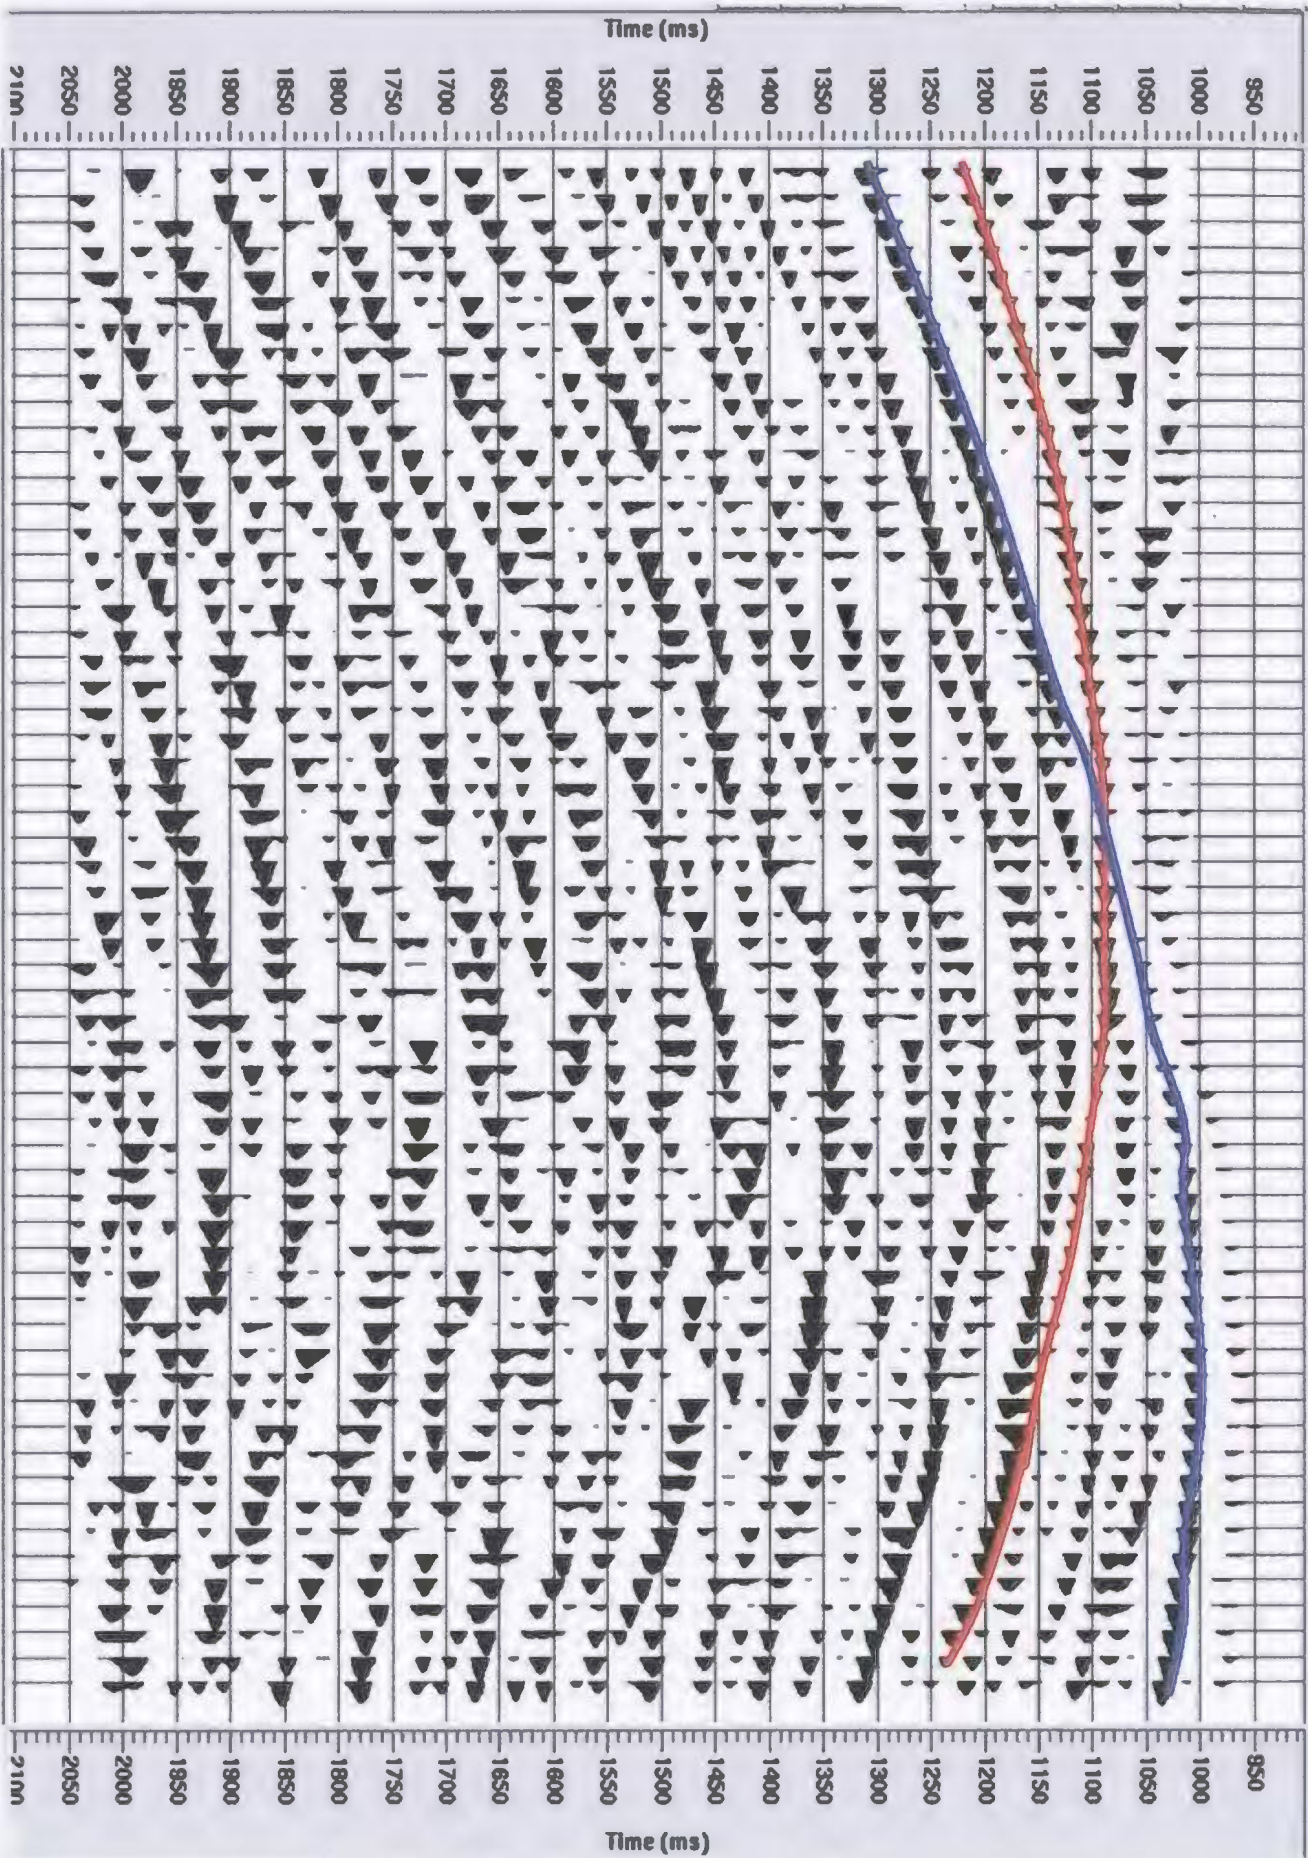 Time (ms)
2100 2050 2000 1950 1900 1850 1800 1750 1700 1650 1600 1550 1500 1450 1400 1350 1300 1250 1200 1150 1100 1050 1000 950
2100 2050 2000 1950 1900 1850 1800 1750 1700 1650 1600 1550 1500 1450 1400 1350 1300 1250 1200 1150 1100 1050 1000 950
Time (ms)